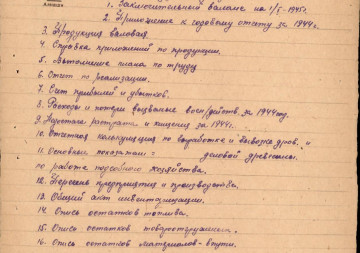 1. Заключительный баланс на 1/I-1945г.
2. Приложение к годовому отчету за 1944г.
3. Продукция валовая
4. Справка приложений по продукции.
5. Выполнение плана по труду
6. Отчет по реализации.
7. Счет прибылей и убытков.
8. Расходы и потери вызванные воен/действ. за 1944 год.
9. Недостачи растраты и хищения за 1944г.
10. Отчетная калькуляция по выработке и вывозке дров. и
11. Основные показатели = деловой древесины.
по работе подсобного хозяйства.
12. Перечень предприятия и производства.
13. Общий акт инвентаризации.
14. Опись остатков топлива.
15. Опись остатков
16. Опись остатков материалов-внутри.